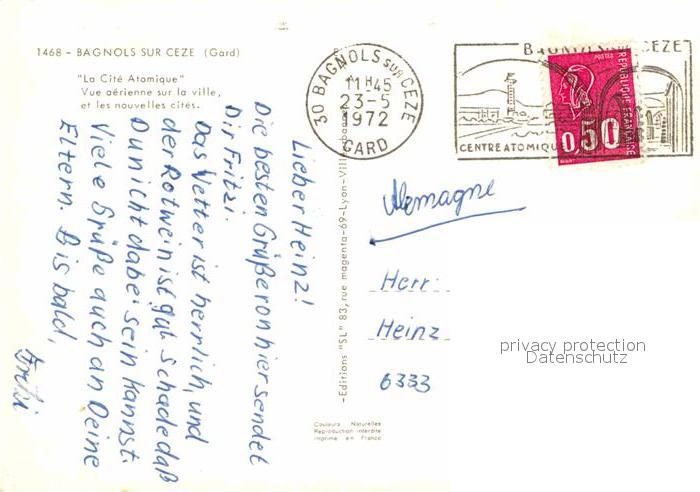 1468 - BAGNOLS SUR CEZE (Gard)
"La Cité Atomique"
Vue aérienne sur la ville,
et les nouvelles cités.
Lieber Heinz!
Die besten Grüße von hier sendet
Dir Fritzi.
Das Wetter ist herrlich, und
der Rotwein ist gut. Schade daß
Du nicht dabei sein kannst.
Viele Grüße auch an Deine
Eltern. Bis bald,
Fritzi
30 BAGNOLS SUR CEZE
11H45
23-5
1972
GARD
CEZE
CENTRE ATOMIQU
POSTES
REPUBLIQUE FRANCAISE
0,50
-Editions "SL" 83, rue magenta-69-Lyon-Vill
Allemagne
Herr
Heinz
6333
Couleurs Naturelles
Reproduction interdite
imprimé en France
privacy protection
Datenschutz